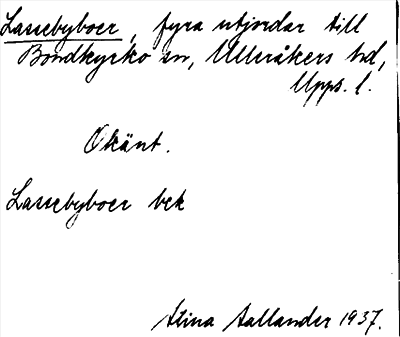 Lassebyboer, fyra utjordar till
Bondkyrko sn, Ulleråkers hd,
Upps. l.
Okänt.
Lassebyboer bek
Stina Aallander 1937.